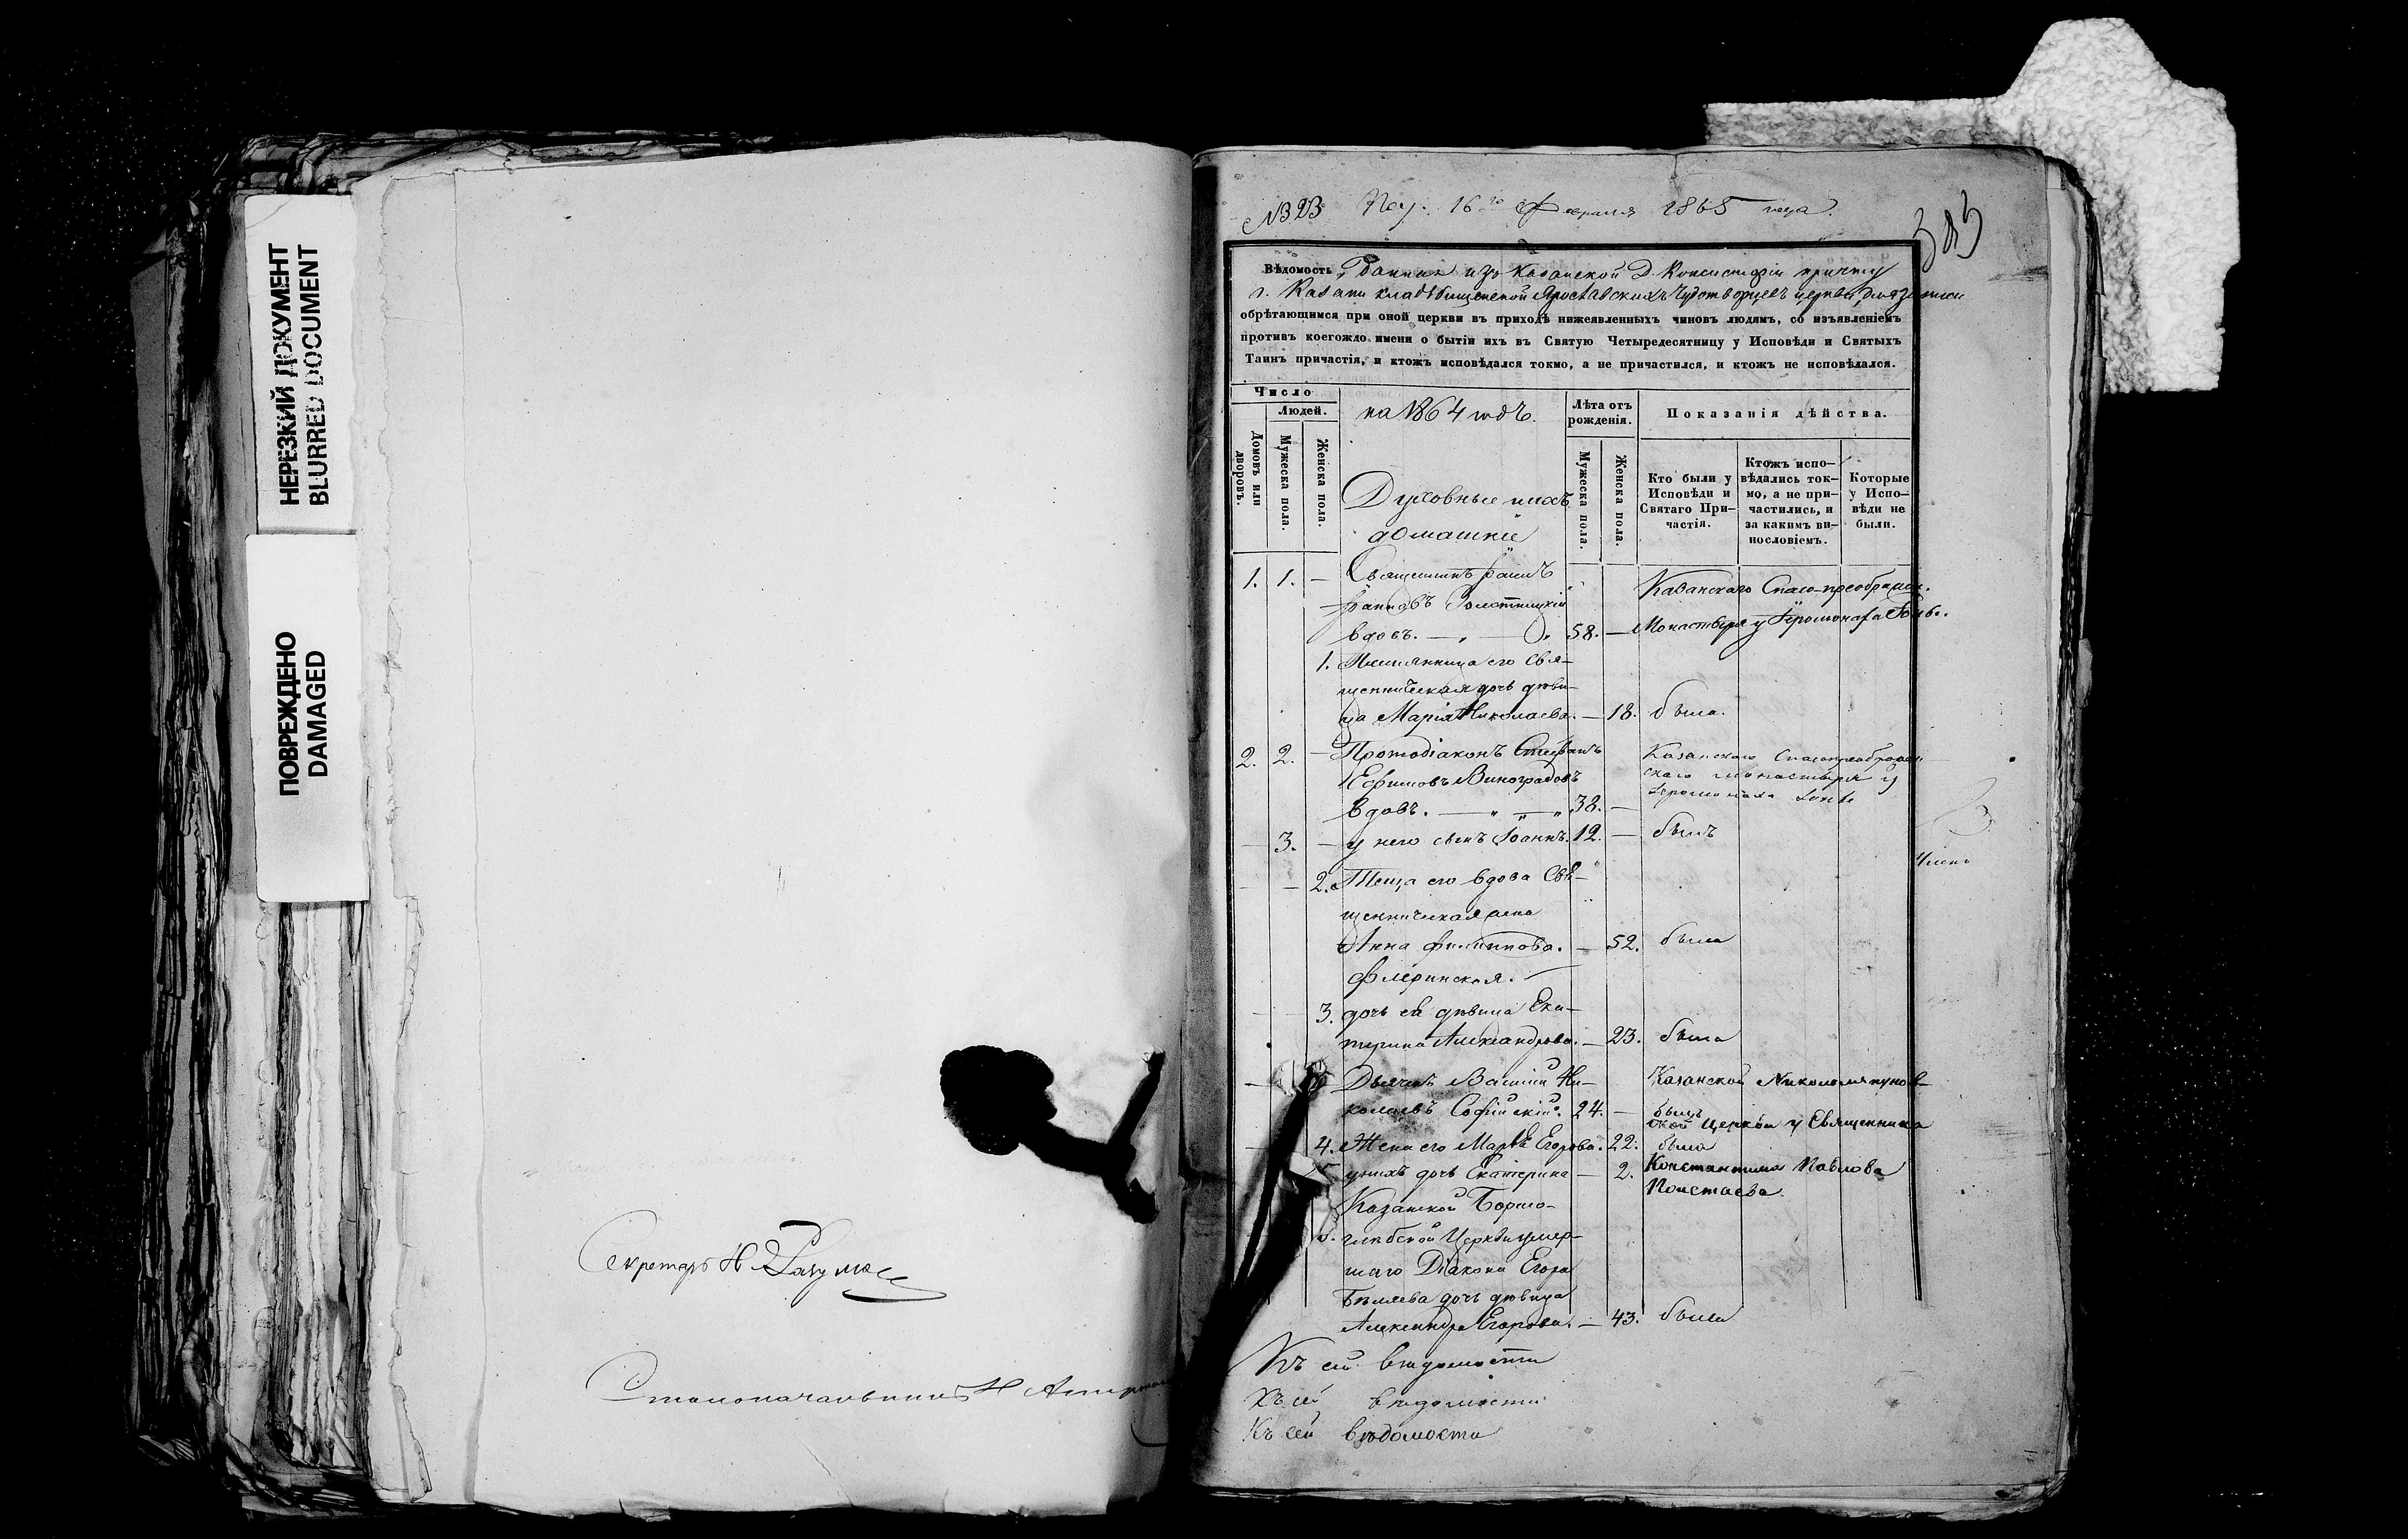 НЕРЕЗКИЙ ДОКУМЕНТ
BLURRED DOCUMENT
ПОВРЕЖДЕНО
DAMAGED
Секретарь Н
Столоначальникъ Н
№ 323 Пол. 16го Февраля 1865 года.
Вѣдомость, данная изъ Казанской Д. Консисторіи причту
г. Казани кладбищенской Ярославскихъ Чудотворцевъ церкви, для записи
обрѣтающимся при оной церкви въ приходѣ нижеявленныхъ чиновъ людямъ, со изъявленіемъ
противъ коегождо имени о бытіи ихъ въ Святую Четыредесятницу у Исповѣди и Святыхъ
Таинъ причастія, и ктожъ исповѣдался токмо, а не причастился, и ктожъ не исповѣдался.
Число
Людей.
Домовъ или дворовъ.
Мужеска пола.
Женска пола.
на 1864 годъ.
Лѣта отъ рожденія.
Мужеска пола.
Женска пола.
Показанія дѣйства.
Кто были у Исповѣди и Святаго Причастія.
Ктожъ исповѣдались токмо, а не причастились, и за какимъ винословіемъ.
Которые у Исповѣди не были.
Духовные и ихъ
домашніе
1. 1. — Священникъ Іоаннъ
Іоанновъ Золотницкій Казанскаго Спасо-преображен.
вдовъ. 58. — Монастыря у Іеромонаха
1. Племянница его Свя-
щенническая дочь дѣви-
ца Марія Николаева. — 18. была.
2. 2. — Протодіаконъ Стефанъ Казанскаго Спасопреображен
Ефимовъ Виноградовъ скаго монастыря у
вдовъ. 38. — Іеромонаха
3. — у него сынъ Іоаннъ. 12. — былъ
2. Теща его вдова Свя-
щенническая жена
Анна Филиппова. — 52. была
Флеринская.
3. дочь ея дѣвица Ека-
терина Александрова. — 23. была
Дьячекъ Василій Ни- Казанской
колаевъ Софійскій. 24. — былъ
ской Церкви у Священника
4. Жена его Егорова. 22. была
5 у нихъ дочь Екатерина — 2. Константина Павлова
Казанской Борисо-
глѣбской Церкви умер-
шаго Діакона Егора
Бѣляева дочь дѣвица
Александра Егорова. — 43. была
Къ сей вѣдомости
Къ сей вѣдомости
Къ сей вѣдомости